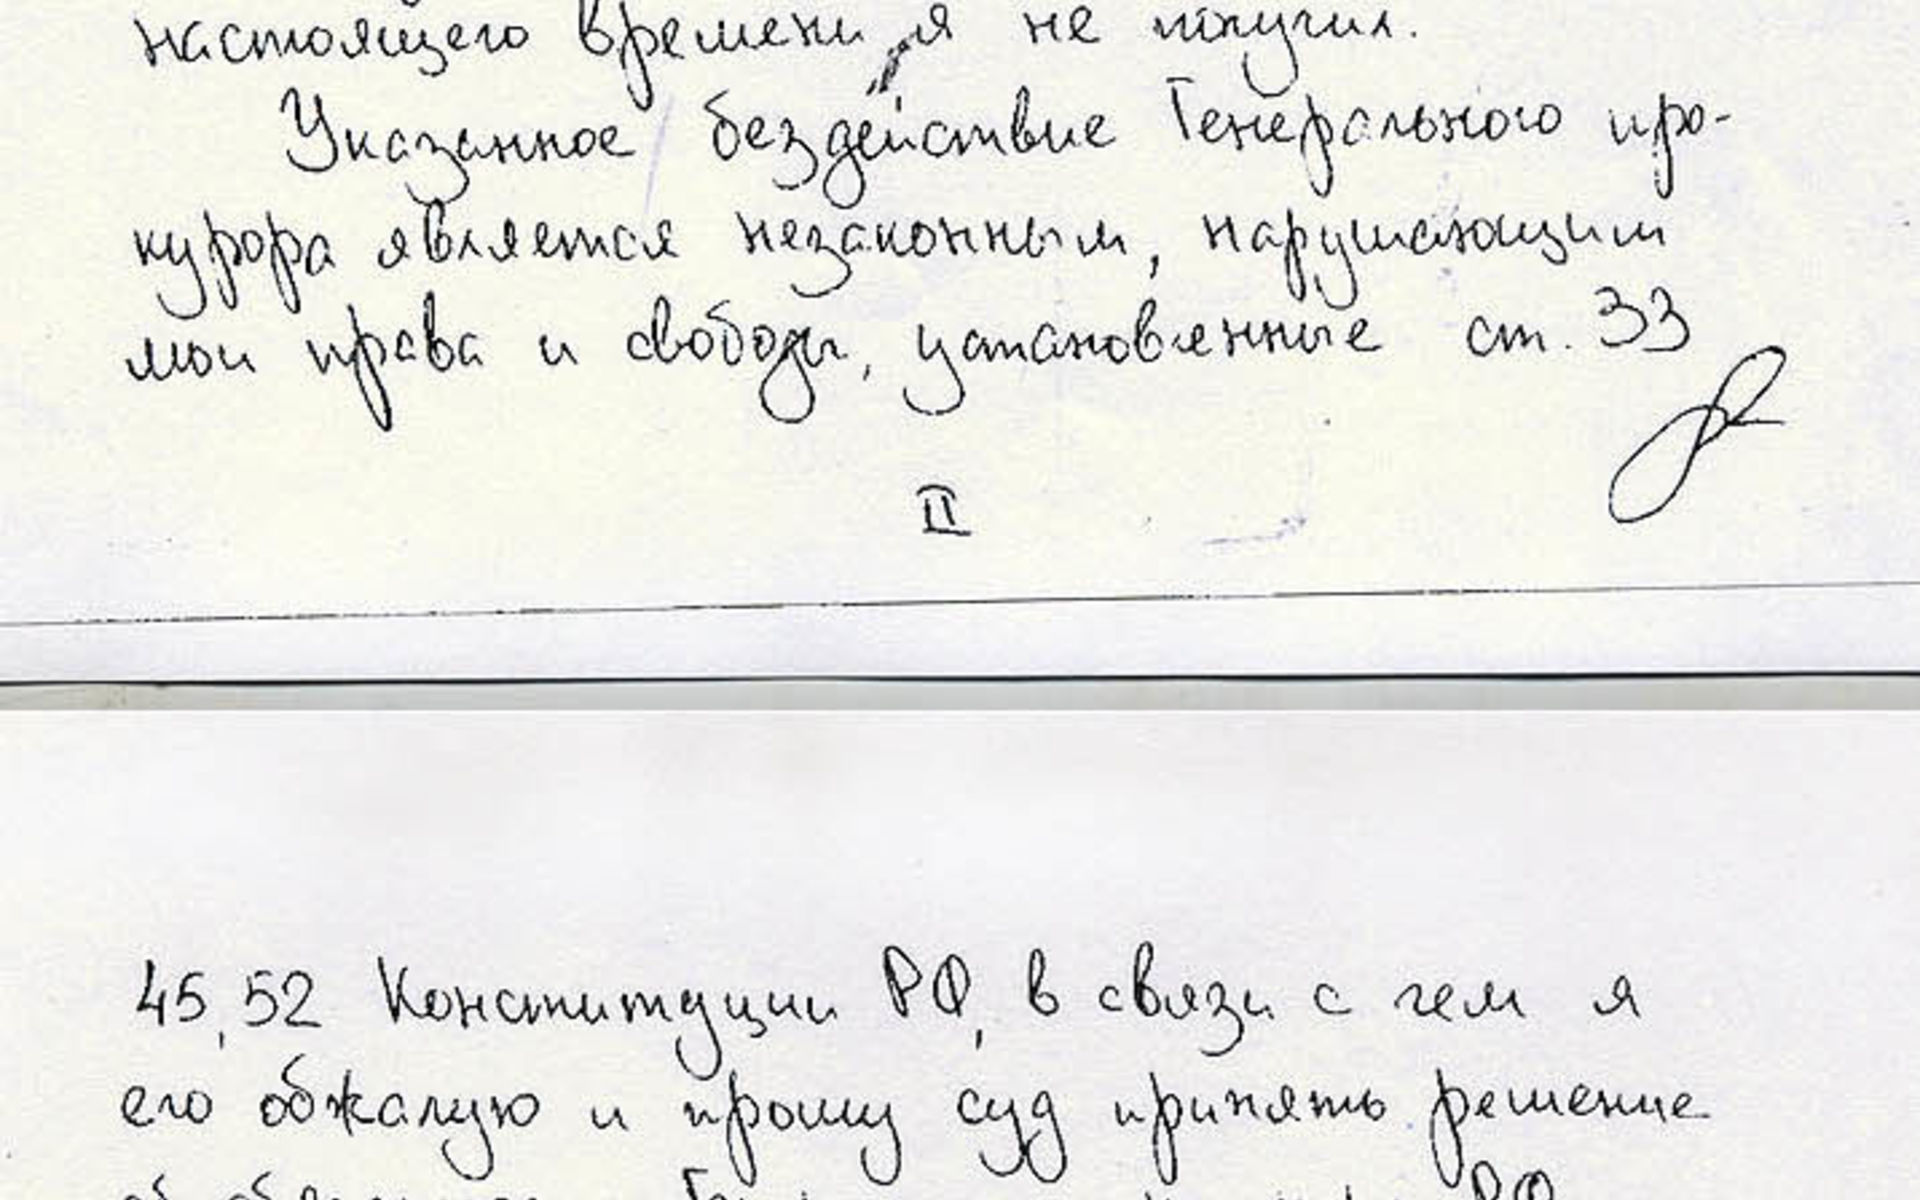 настоящего времени я не получил.
Указанное бездействие Генерального про-
курора является незаконным, нарушающим
мои права и свободы, установленные ст. 33
II
45, 52 Конституции РФ, в связи с чем я
его обжалую и прошу суд принять решение
об РФ